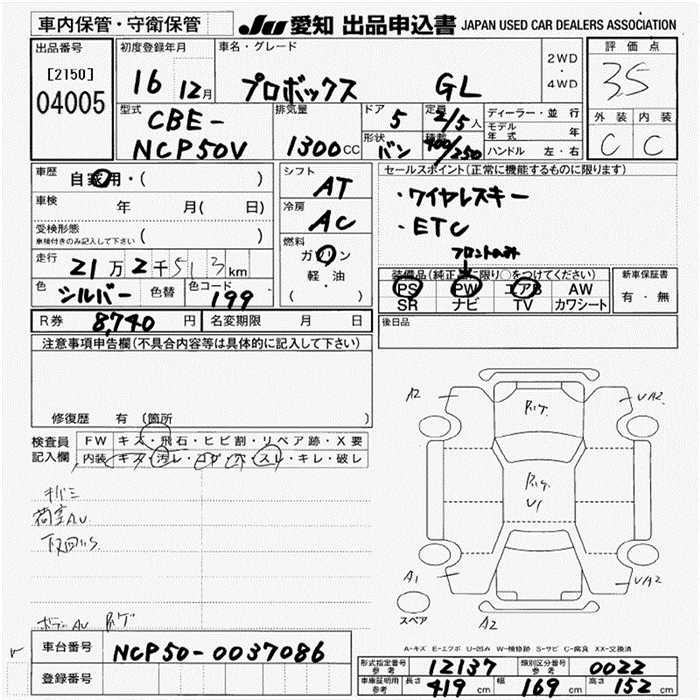 車内保管・守衛保管
JU 愛知 出品申込書 JAPAN USED CAR DEALERS ASSOCIATION
出品番号
[2150]
04005
初度登録年月
16 12月
車名・グレード
プロボックス GL
2WD
・
4WD
評価点
3.5
外装 内装
C C
型式
CBE-
NCP50V
排気量
1300CC
ドア 5
形状 バン
定員 2/5人
積載 400/250
ディーラー・並行
モデル年式 年
ハンドル 左・右
車歴 自家用・( )
車検 年 月( 日)
受検形態
車検付きのみ記入して下さい ( )
走行 21万2千513km
色 シルバー 色替 色コード 199
シフト AT
冷房 AC
燃料
ガソリン
軽・油
( )
セールスポイント(正常に機能するものに限ります)
・ワイヤレスキー
・ETC
フロントのみ
装備品(純正品に限り○をつけてください)
PS PW エアB AW
SR ナビ TV カワシート
新車保証書
有・無
R券 8,740円 名変期限 月 日
後日品
注意事項申告欄(不具合内容等は具体的に記入して下さい)
修復歴 有(箇所 )
検査員
記入欄
FW キズ・飛石・ヒビ割・リペア跡・X要
内装 キズ・汚レ・コゲ・穴・スレ・キレ・破レ
荷室AU
下回りS
ボデーAU
A2
UA2
U1
A1
UA2
スペア
A2
A-キズ E-エクボ U-凹み W-補修跡 S-サビ C-腐食 XX-交換済
車台番号 NCP50-0037086
登録番号
形式指定番号 参考 12137 類別区分番号 参考 0022
車庫証明用 参考 長さ 419cm 幅 169cm 高さ 152cm